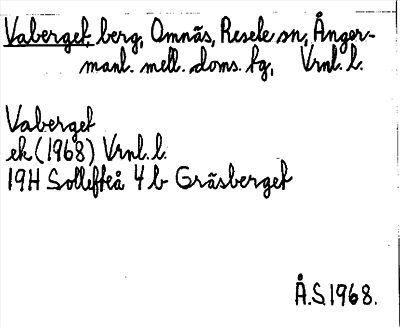 Vaberget, berg, Omnäs, Resele sn, Ånger-
manl. mell. doms. fg, Vrnl. l.
Vaberget
ek (1968) Vrnl. l.
19H Sollefteå 4 b Gräsberget
Å.S. 1968.